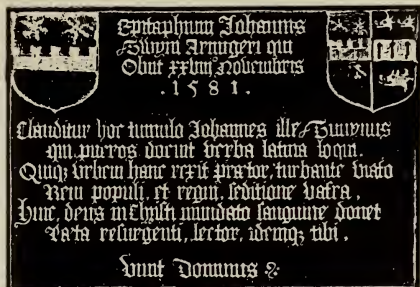 Epitaphium Johannis
Armigeri qui
Obiit xxviij Novembris
. 1 5 8 1 .
Clauditur hoc tumulo Johannes ille
qui pueros docuit verba latina loqui.
Quiq; urbem hanc rexit prætor, turbante viato
Rem populi, et regni, seditione vafra,
Hinc, deus in Christi mundato sanguine donet
Fata resurgenti, lector, idemq; tibi,
Vivit Dominus